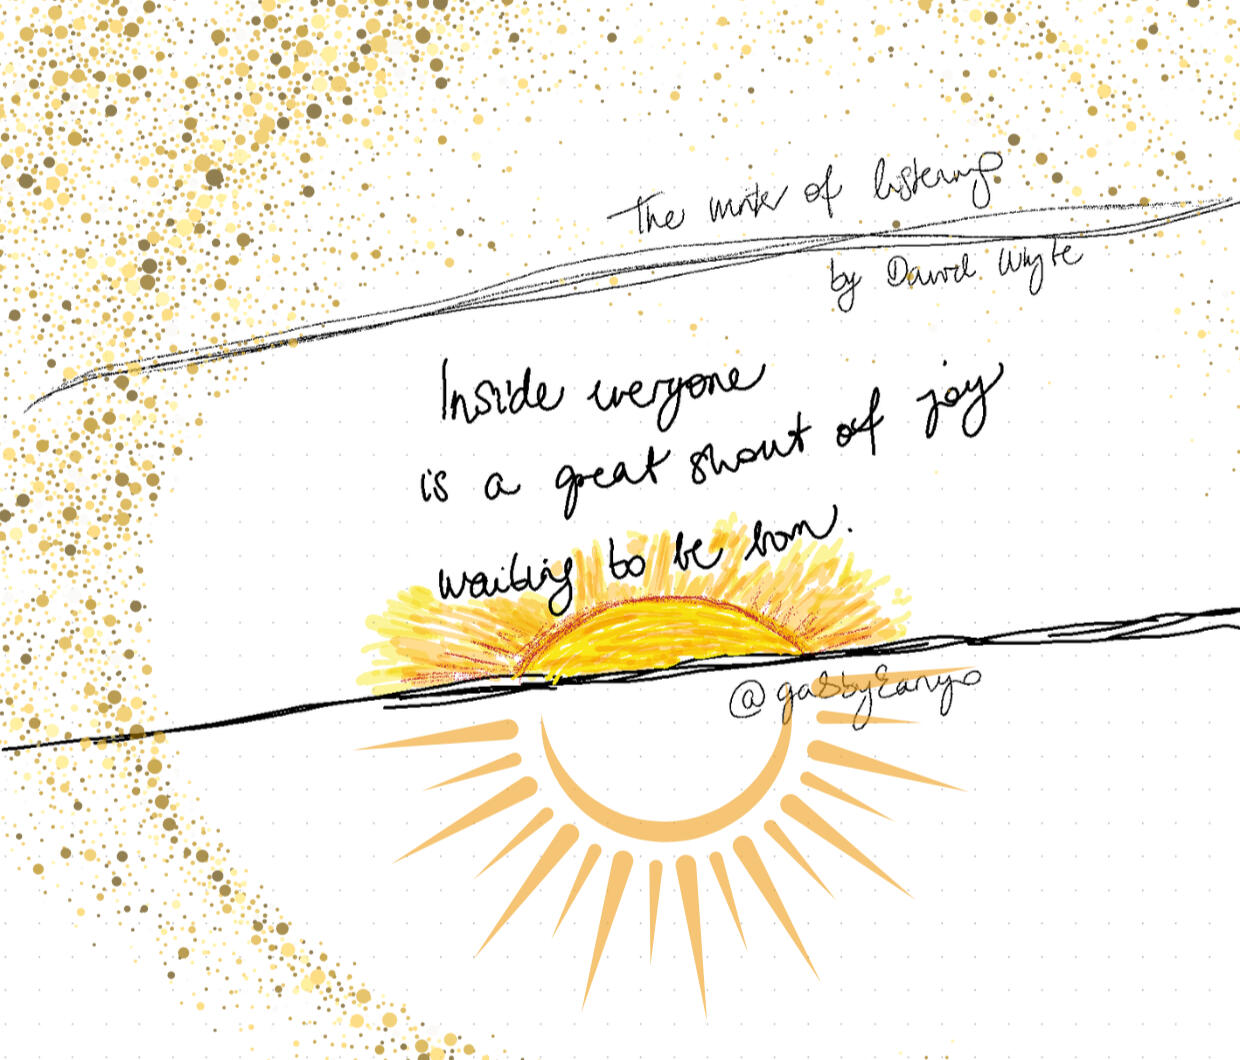 The winter of listening
by David Whyte
Inside everyone
is a great shout of joy
waiting to be born.
@gabbyEanyo